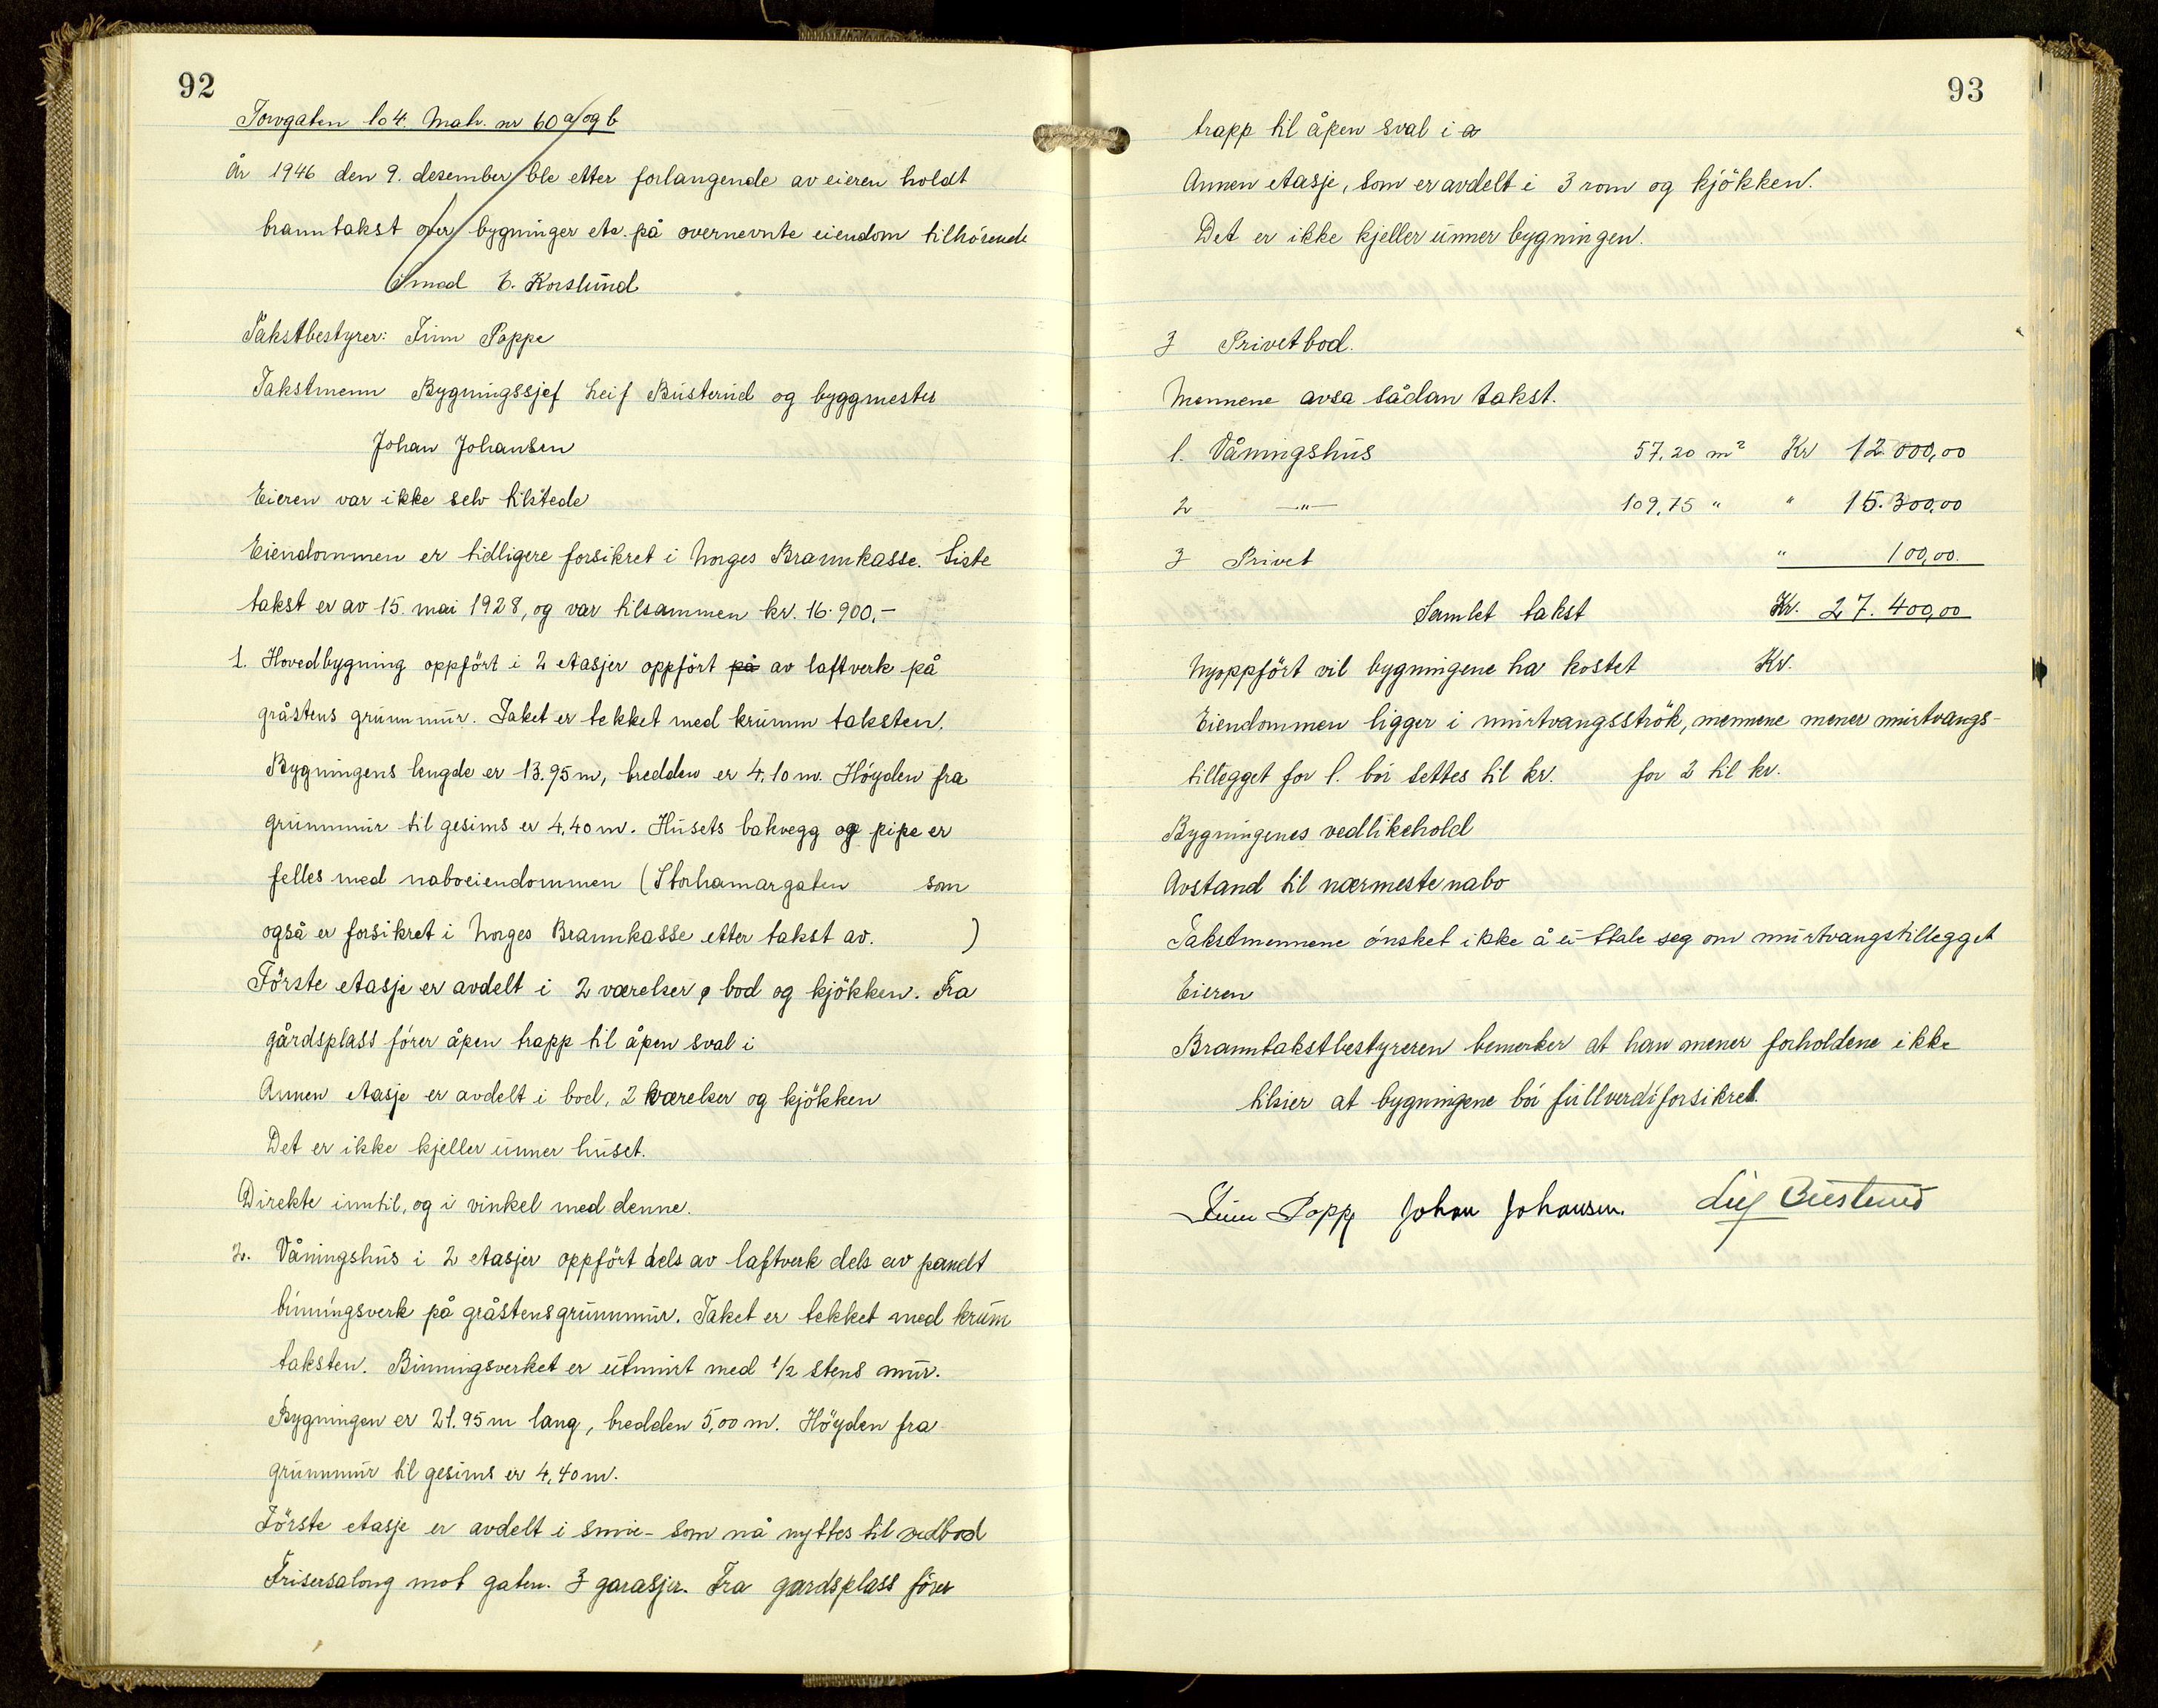 92
Torvgaten 104. Matr. nr 60 a og b
År 1946 den 9. desember ble etter forlangende av eieren holdt
branntakst over bygninger etc. på overnevnte eiendom tilhörende
Smed E. Korslund
Takstbestyrer: Finn Poppe
Takstmenn Bygningssjef Leif Busterud og byggmester
Johan Johansen
Eieren var ikke selv tilstede
Eiendommen er tidligere forsikret i Norges Brannkasse. Siste
takst er av 15. mai 1928, og var tilsammen kr. 16.900,-
1. Hovedbygning oppfört i 2 etasjer oppfört på av laftverk på
gråstens grunnmur. Taket er tekket med krumm taksten.
Bygningens lengde er 13.95 m, bredden er 4,10 m. Höyden fra
grunnmur til gesims er 4,40 m. Husets bakvegg og pipe er
felles med naboeiendommen (Storhamargaten som
også er forsikret i Norges Brannkasse etter takst av. )
Förste etasje er avdelt i 2 værelser, bod og kjökken. Fra
gårdsplass förer åpen trapp til åpen sval i
Annen etasje er avdelt i bod, 2 værelser og kjökken
Det er ikke kjeller unner huset.
Direkte inntil, og i vinkel med denne.
2. Våningshus i 2 etasjer oppfört dels av laftverk dels av pandt
binningsverk på gråstensgrunnmur. Taket er tekket med krum
taksten. Binningsverket er utmurt med 1/2 stens mur.
Bygningen er 21.95 m lang, bredden 5,00 m. Höyden fra
grunnmur til gesims er 4,40 m.
Förste etasje er avdelt i smie - som nå nyttes til vedbod
Frisersalong mot gaten. 3 garasjer. Fra gardsplass förer
93
trapp til åpen sval i a
Annen etasje, som er avdelt i 3 rom og kjökken.
Det er ikke kjeller unner bygningen.
3 Privetbod.
Mennene avsa sådan takst.
1. Våningshus 57,20 m² Kr 12.000,00
2 —"— 109,75 " " 15.300,00
3 Privet " 100,00.
Samlet takst Kr. 27.400,00
Nyoppfört vil bygningene ha kostet Kr.
Eiendommen ligger i murtvangsströk, mennene mener murtvangs-
tillegget for 1. bör settes til kr. for 2 til kr.
Bygningenes vedlikehold
Avstand til nærmeste nabo
Takstmennene önsket ikke å u-ttale seg om murtvangstillegget
Eieren
Branntakstbestyreren bemerker at han mener forholdene ikke
tilsier at bygningene bör fullverdiforsikret.
Finn Poppe Johan Johansen. Leif Busterud